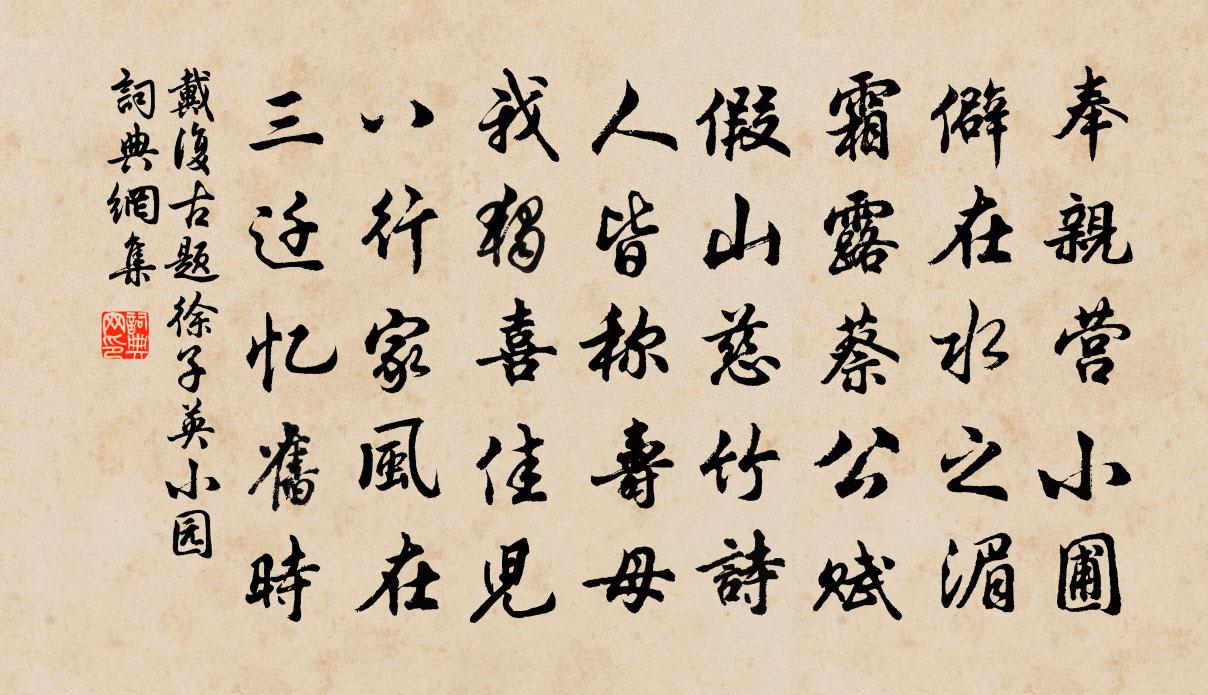 奉親营小圃
僻在水之湄
霜露蔡公赋
假山慈竹詩
人皆称壽母
我獨喜佳児
八行家風在
三迁忆舊時
戴復古题徐子英小园
詞典網集
詞典网印